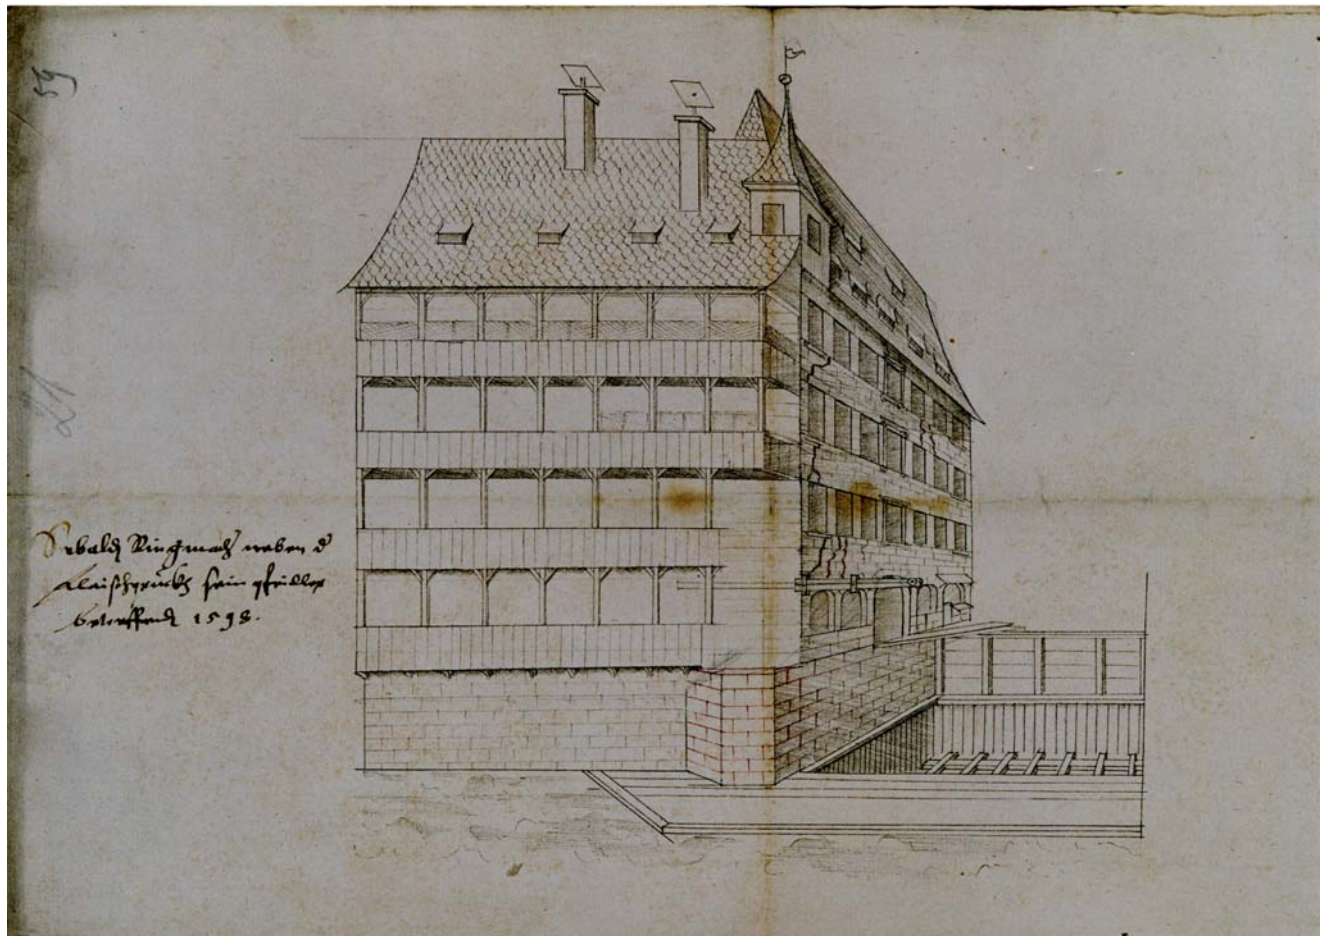 59
21
Sebald Ringmach neben d
fleischprückh sein pfeiller
betreffend 1598.